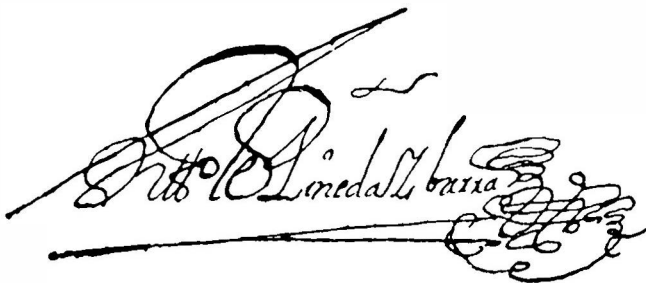 Antto de Pineda Ybarra